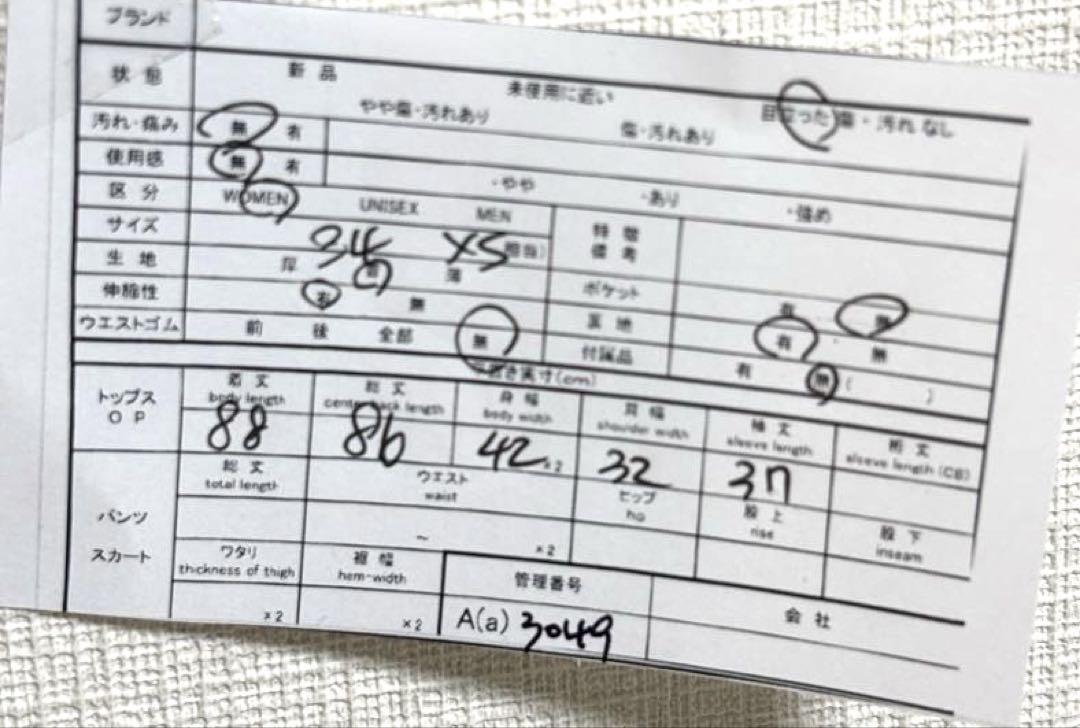 ブランド
状態 新品 未使用に近い 目立った傷・汚れなし
やや傷・汚れあり 傷・汚れあり
汚れ・痛み 無 有
使用感 無 有 ・やや ・あり ・強め
区分 WOMEN UNISEX MEN
サイズ 34 XS 相当) 備考
生地 厚 薄 ポケット 有
伸縮性 有 無 裏地 有 無
ウエストゴム 前 後 全部 無 付属品 有 無 ( )
平置き実寸(cm)
トップス
OP
着丈
body length
88
総丈
center back length
86
身幅
body width
42 ×2
肩幅
shoulder width
32
袖丈
sleeve length
37
裄丈
sleeve length (CB)
パンツ
スカート
総丈
total length
ウエスト
waist
~ ×2
ヒップ
股上
rise
股下
inseam
ワタリ
thickness of thigh
×2
裾幅
hem-width
×2
管理番号
A(a) 3049
会社